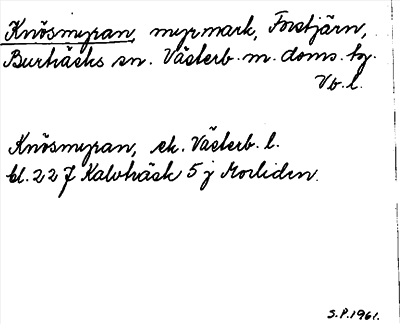 Knösmyran, myrmark, Forstjärn,
Burträsks sn. Västerb. m. doms. bg.
Vb. l.
Knösmyran, ek. Västerb. l.
bl. 227 Kalvträsk 5 j Morliden.
S.P. 1961.